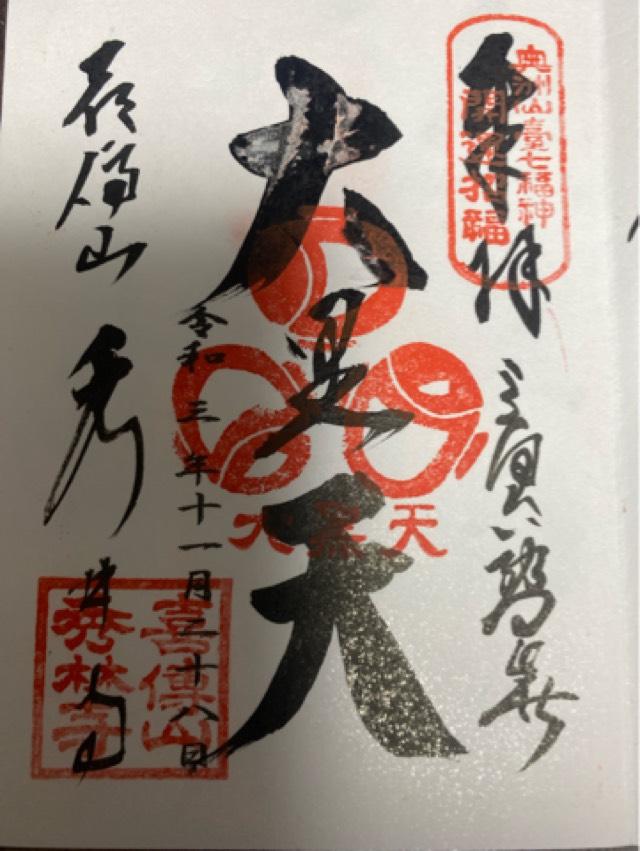 奥州仙臺七福神
開運招福
奉拝
大黒天
大黒天
令和三年十一月二十八日
喜傳山
秀林寺
喜傳山 秀林寺